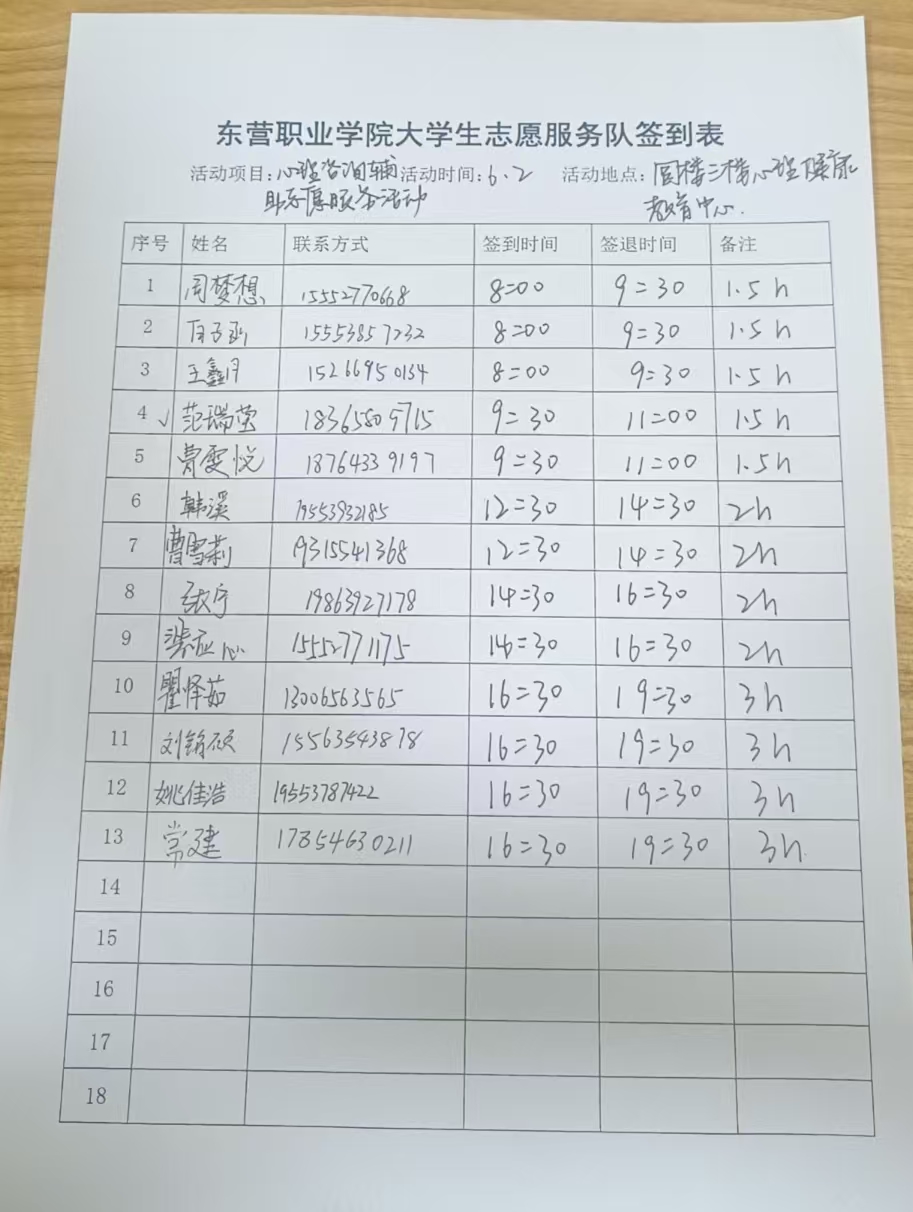 东营职业学院大学生志愿服务队签到表
活动项目：心理咨询辅 活动时间：6.2 活动地点：图楼二楼心理健康
助志愿服务活动 教育中心.
序号 姓名 联系方式 签到时间 签退时间 备注
1 周梦想 15552770668 8=00 9=30 1.5h
2 15553857232 8=00 9=30 1.5h
3 王鑫月 15266950134 8=00 9=30 1.5h
4 √ 范瑞莹 18365805715 9=30 11=00 1.5h
5 曹雯悦 18764339197 9=30 11=00 1.5h
6 韩溪 19553932185 12=30 14=30 2h
7 曹雪莉 19315541368 12=30 14=30 2h
8 张宁 19863927178 14=30 16=30 2h
9 15552771175 14=30 16=30 2h
10 瞿怿茹 13006563565 16=30 19=30 3h
11 15563543878 16=30 19=30 3h
12 姚佳浩 19553787422 16=30 19=30 3h
13 常建 17854630211 16=30 19=30 3h
14
15
16
17
18